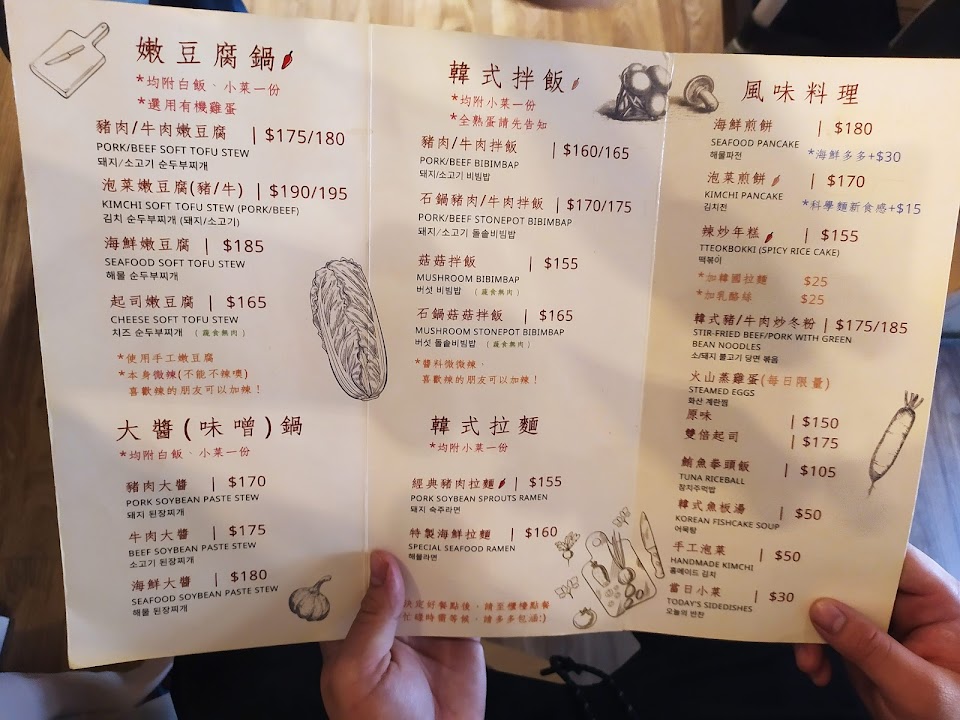 嫩豆腐鍋
*均附白飯、小菜一份
*選用有機雞蛋
豬肉/牛肉嫩豆腐 | $175/180
PORK/BEEF SOFT TOFU STEW
돼지/소고기 순두부찌개
泡菜嫩豆腐(豬/牛) | $190/195
KIMCHI SOFT TOFU STEW (PORK/BEEF)
김치 순두부찌개 (돼지/소고기)
海鮮嫩豆腐 | $185
SEAFOOD SOFT TOFU STEW
해물 순두부찌개
起司嫩豆腐 | $165
CHEESE SOFT TOFU STEW
치즈 순두부찌개 (蔬食無肉)
*使用手工嫩豆腐
*本身微辣(不能不辣噢)
喜歡辣的朋友可以加辣！
大醬(味噌)鍋
*均附白飯、小菜一份
豬肉大醬 | $170
PORK SOYBEAN PASTE STEW
돼지 된장찌개
牛肉大醬 | $175
BEEF SOYBEAN PASTE STEW
소고기 된장찌개
海鮮大醬 | $180
SEAFOOD SOYBEAN PASTE STEW
해물 된장찌개
韓式拌飯
*均附小菜一份
*全熟蛋請先告知
豬肉/牛肉拌飯 | $160/165
PORK/BEEF BIBIMBAP
돼지/소고기 비빔밥
石鍋豬肉/牛肉拌飯 | $170/175
PORK/BEEF STONEPOT BIBIMBAP
돼지/소고기 돌솥비빔밥
菇菇拌飯 | $155
MUSHROOM BIBIMBAP
버섯 비빔밥 (蔬食無肉)
石鍋菇菇拌飯 | $165
MUSHROOM STONEPOT BIBIMBAP
버섯 돌솥비빔밥 (蔬食無肉)
*醬料微微辣，
喜歡辣的朋友可以加辣！
韓式拉麵
*均附小菜一份
經典豬肉拉麵 | $155
PORK SOYBEAN SPROUTS RAMEN
돼지 숙주라면
特製海鮮拉麵 | $160
SPECIAL SEAFOOD RAMEN
해물라면
決定好餐點後，請至櫃檯點餐
忙碌時需等候，請多多包涵:)
風味料理
海鮮煎餅 | $180
SEAFOOD PANCAKE
해물파전 *海鮮多多+$30
泡菜煎餅 | $170
KIMCHI PANCAKE
김치전 *科學麵新食感+$15
辣炒年糕 | $155
TTEOKBOKKI (SPICY RICE CAKE)
떡볶이
*加韓國拉麵 $25
*加乳酪絲 $25
韓式豬/牛肉炒冬粉 | $175/185
STIR-FRIED BEEF/PORK WITH GREEN
BEAN NOODLES
소/돼지 불고기 당면 볶음
火山蒸雞蛋(每日限量)
STEAMED EGGS
화산 계란찜
原味 | $150
雙倍起司 | $175
鮪魚拳頭飯 | $105
TUNA RICEBALL
참치주먹밥
韓式魚板湯 | $50
KOREAN FISHCAKE SOUP
어묵탕
手工泡菜 | $50
HANDMADE KIMCHI
홈메이드 김치
當日小菜 | $30
TODAY'S SIDEDISHES
오늘의 반찬